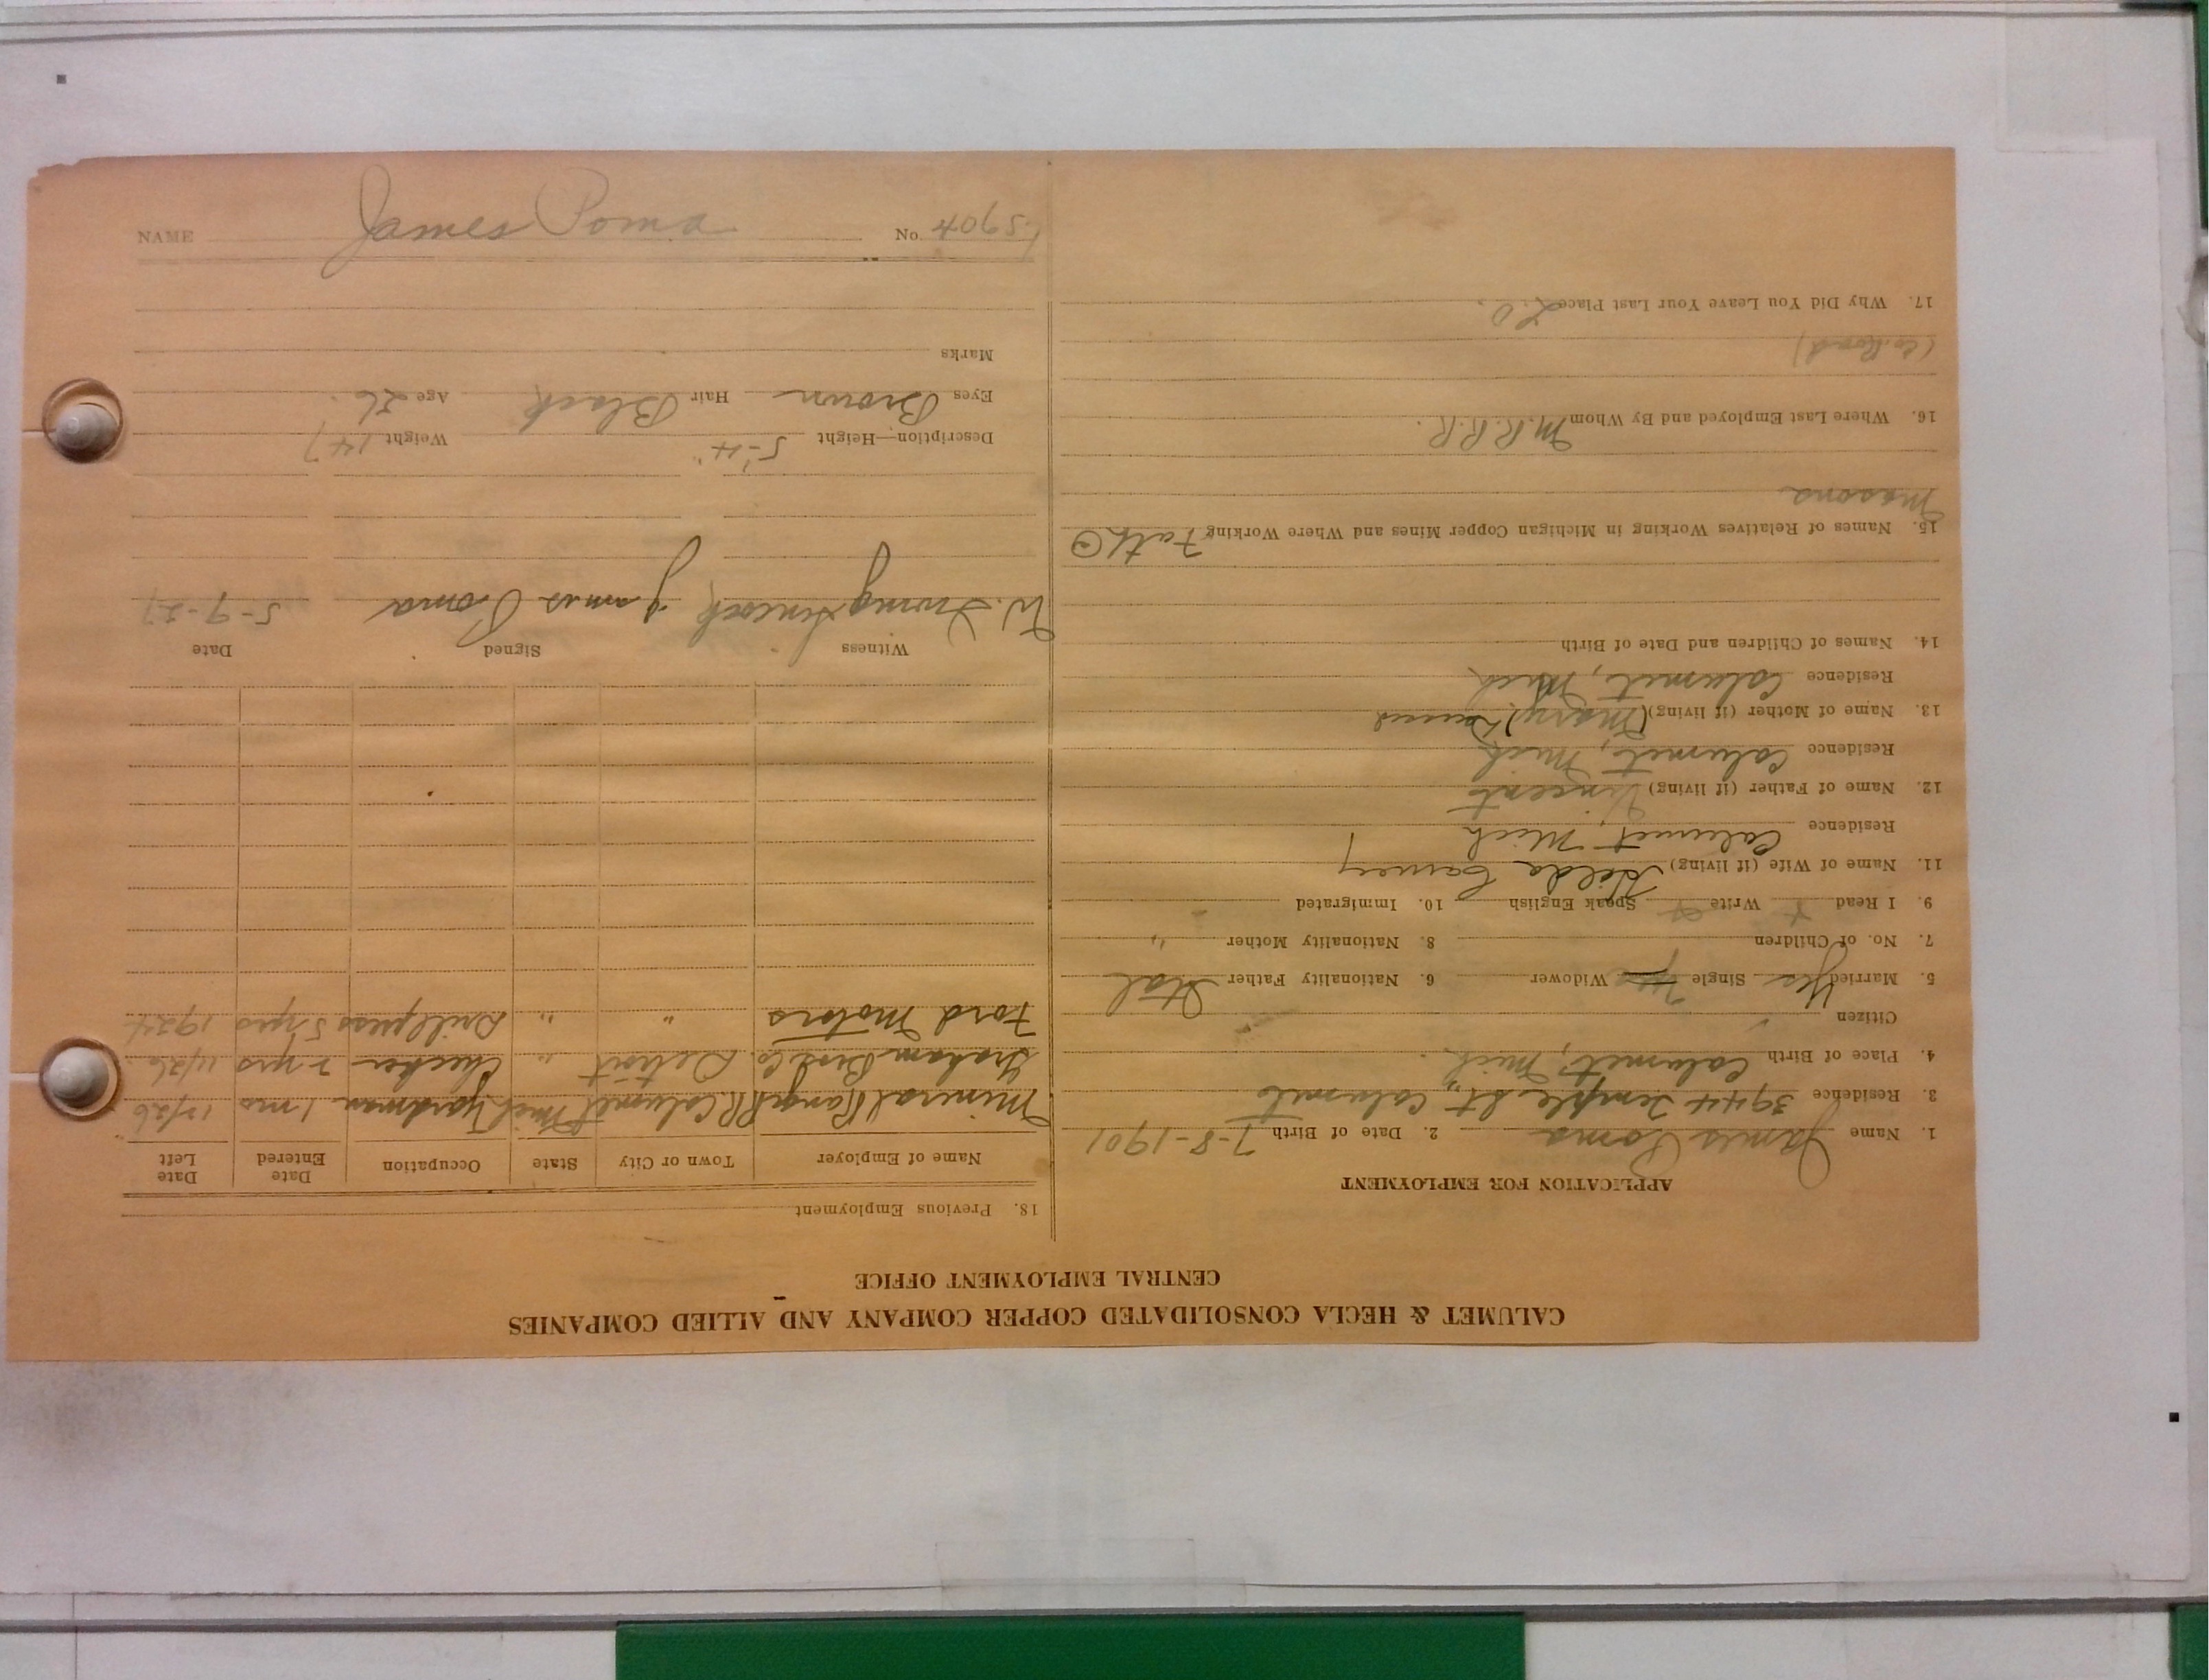 CALUMET & HECLA CONSOLIDATED COPPER COMPANY AND ALLIED COMPANIES
CENTRAL EMPLOYMENT OFFICE
APPLICATION FOR EMPLOYMENT
1. Name James Poma 2. Date of Birth 7-8-1901
3. Residence 3944 Temple St., Calumet
4. Place of Birth Calumet, Mich.
Citizen
5. Married Yes Single Widower 6. Nationality Father Ital
7. No. of Children 8. Nationality Mother "
9. I Read Write Speak English 10. Immigrated
11. Name of Wife (if living) Hilda
Residence Calumet, Mich
12. Name of Father (if living) Vincent
Residence Calumet, Mich
13. Name of Mother (if living) (Mary)
Residence Calumet, Mich
14. Names of Children and Date of Birth
15. Names of Relatives Working in Michigan Copper Mines and Where Working
Masons
16. Where Last Employed and By Whom M.R.R.R.
17. Why Did You Leave Your Last Place L.O.
18. Previous Employment
Name of Employer Town or City State Occupation Date Entered Date Left
Mineral Range RR. Calumet Mich Yardman 1 mo 12/26
Graham Bros Co. Detroit " Checker 2 yrs 11/26
Ford Motors " " Drillpress 5 yrs 1924
Witness Signed Date
W. Irving James Poma 5-9-27
Description—Height 5-4" Weight 147
Eyes Brown Hair Black Age 26.
Marks
NAME James Poma
No